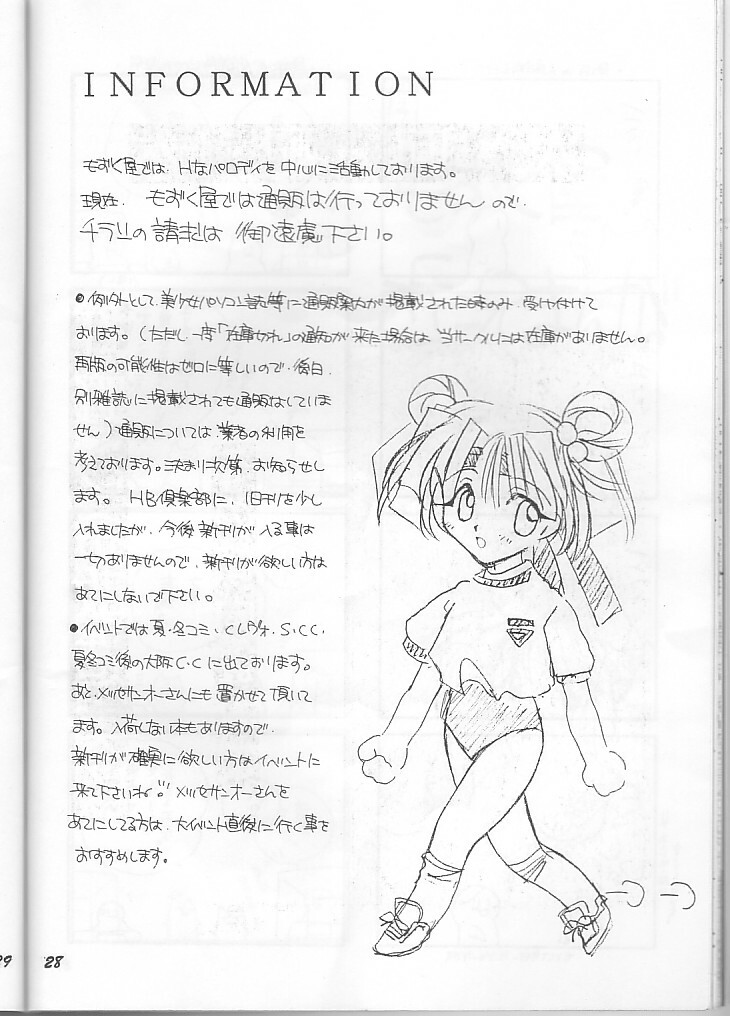 INFORMATION
もずく屋では、Hなパロディを中心に活動しております。
現在、もずく屋では通販は行っておりませんので、
チラシの請求は御遠慮下さい。
●例外として、美少女パソコン誌等に通販案内が掲載された時のみ、受け付けて
おります。(ただし、一度「在庫切れ」の通知が来た場合は、当サークルには在庫がありません。
再版の可能性はゼロに等しいので、後日、
別雑誌に掲載されても通販はしていま
せん)通販については、業者の利用を
考えております。決まり次第、お知らせし
ます。HB倶楽部に、旧刊を少し
入れましたが、今後新刊が入る事は
一切ありませんので、新刊が欲しい方は
あてにしないで下さい。
●イベントでは夏・冬コミ、Cレヴォ、S.C.C.
夏冬コミ後の大阪C.Cに出ております。
あと、メッセサンオーさんにも置かせて頂いて
ます。入荷しない本もありますので、
新刊が確実に欲しい方はイベントに
来て下さいね!メッセサンオーさんを
あてにしてる方は、大イベント直後に行く事を
おすすめします。
28